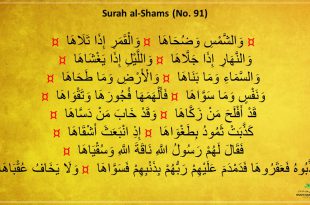 Surah al-Shams (No. 91)
وَالشَّمْسِ وَضُحَاهَا ¤ وَالْقَمَرِ إِذَا تَلَاهَا ¤
وَالنَّهَارِ إِذَا جَلَّاهَا ¤ وَاللَّيْلِ إِذَا يَغْشَاهَا ¤
وَالسَّمَاءِ وَمَا بَنَاهَا ¤ وَالْأَرْضِ وَمَا طَحَاهَا ¤
وَنَفْسٍ وَمَا سَوَّاهَا ¤ فَأَلْهَمَهَا فُجُورَهَا وَتَقْوَاهَا ¤
قَدْ أَفْلَحَ مَنْ زَكَّاهَا ¤ وَقَدْ خَابَ مَنْ دَسَّاهَا ¤
كَذَّبَتْ ثَمُودُ بِطَغْوَاهَا ¤ إِذِ انْبَعَثَ أَشْقَاهَا ¤
فَقَالَ لَهُمْ رَسُولُ اللَّهِ نَاقَةَ اللَّهِ وَسُقْيَاهَا ¤
فَعَقَرُوهَا فَدَمْدَمَ عَلَيْهِمْ رَبُّهُمْ بِذَنْبِهِمْ فَسَوَّاهَا ¤ وَلَا يَخَافُ عُقْبَاهَا